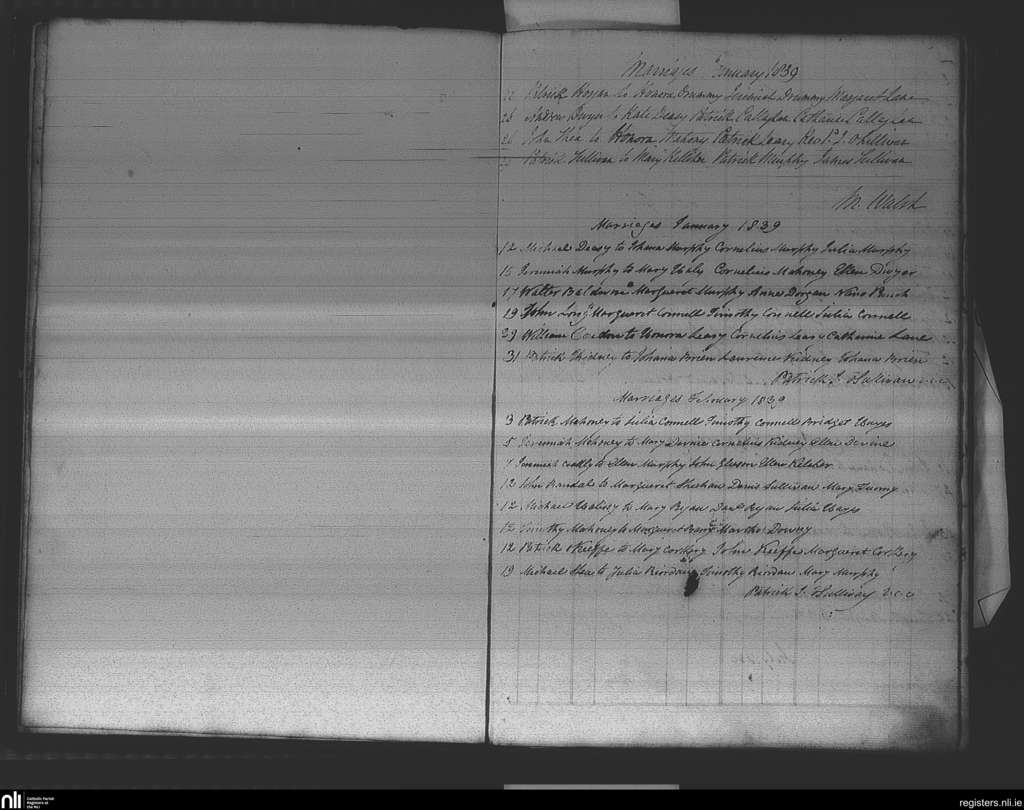 Marriages January 1839
22 Patrick Horgan to Honora Drummy Jeremiah Drummy Margaret Lane
26 Andrew Dwyer to Kate Deasy Patrick Callaghan Catharine Callaghan
26 John Shea to Honora Mahony Patrick Leary Revd P. J. O Sullivan
Patrick Sullivan to Mary Kelleher Patrick Murphy James Sullivan
M. Walsh
Marriages January 1839
12 Michael Deasy to Johana Murphy Cornelius Murphy Julia Murphy
15 Jeremiah Murphy to Mary Cornelius Mahoney Ellen Dwyer
17 Walter Margueret Murphy Anne Dorgan
19 John Long Margueret Connell Timothy Connell Julia Connell
29 William to Honora Leary Cornelius Leary Catharine Lane
31 Patrick Kidney to Johana Brien Laurence Kidney Johana Brien
Patrick J. O'Sullivan
Marriages February 1839
3 Patrick Mahoney to Julia Connell Timothy Connell Bridget Hayes
5 Jeremiah Mahoney to Mary Cornelius Kidney Ellen Devine
7 Jeremiah to Ellen Murphy John Gleeson Ellen Keleher
12 John to Margueret Sheehan Denis Sullivan Mary Tuomy
12 Michael to Mary Ryan Dan Ryan Julia Hayes
12 Timothy Mahoney to Margueret Martha Downy
12 Patrick Keiffe to Mary Corkery John Keiffe Margueret Corkery
19 Michael Shea to Julia Riordan Timothy Riordan Mary Murphy
Patrick J. O'Sullivan R.C.C
nli Catholic Parish Registers at the NLI
registers.nli.ie